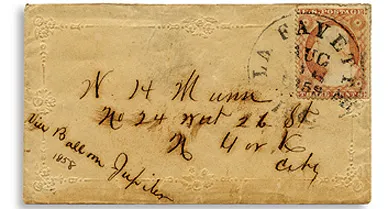 LA FAYETTE
AUG
58
W H Munn
No 24 West 26 St
N York
City
Via Balloon Jupiter
1858